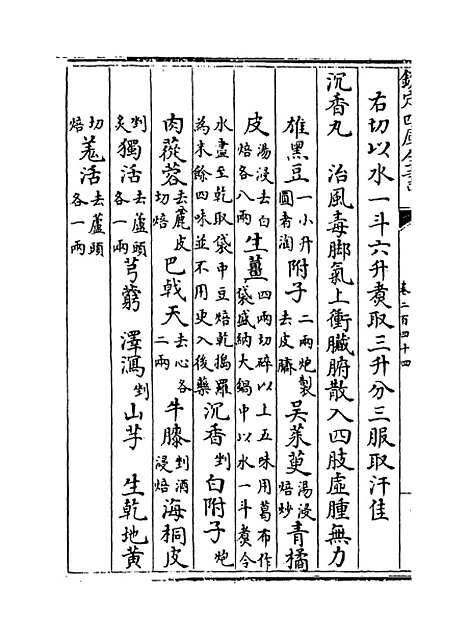 欽定四庫全書
卷二百四十四
右切以水一斗六升煑取三升分三服取汗佳
沉香丸 治風毒脚氣上衝臟腑散入四肢虚腫無力
雄黑豆一小升圓者淘附子二兩炮製去皮臍吳茱萸湯浸焙炒青橘
皮湯浸去白焙各八兩生薑四兩切碎以上五味用葛布作袋盛納大鍋中以水一斗煑令
水盡至乾取袋中豆焙乾搗羅為末餘四味並不用更入後藥沉香剉白附子炮
肉蓯蓉去麄皮切焙巴㦸天去心各二兩牛膝剉酒浸焙海桐皮
剉炙獨活去蘆頭各一兩芎藭 澤瀉剉山芋 生乾地黄
切焙羗活去蘆頭各一兩